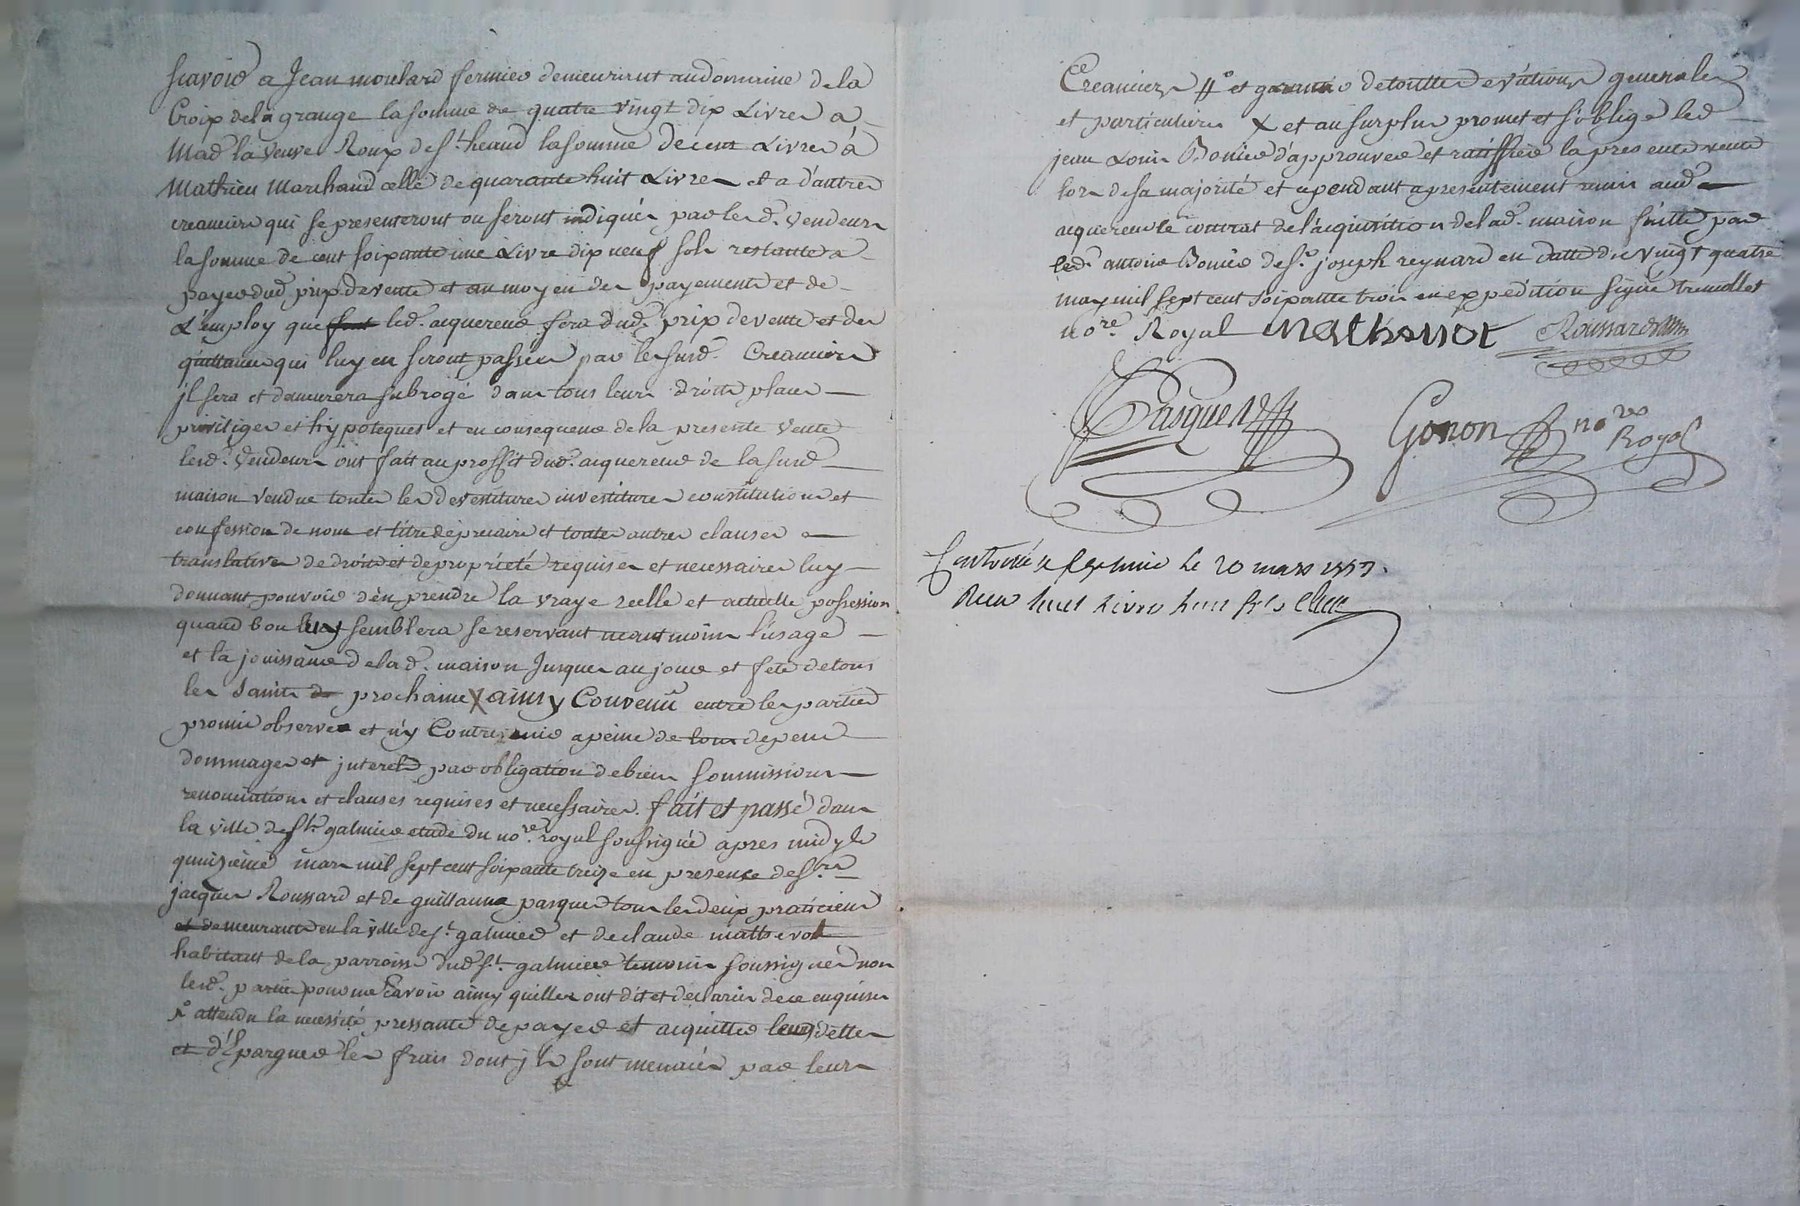 scavoir a Jean moulard fermier demeurent au domaine de la
Croix de la grange la somme de quatre vingt dix Livres a
Made la veuve Roux de St. heand la somme de cent Livres à
Mathieu Marchand celle de quarante huit Livres et a d'autres
creanciers qui se presenteront ou seront indiqués par lesd. vendeurs
la somme de cent soixante une Livre dix neuf sols restante a
payer dud. prix de vente et au moyen des payements et de
L'employ que led. acquereur fera dud. prix de vente et des
quittances qui luy en seront passées par les susd. Creanciers
jl sera et demeurera subrogé dans tous leurs droits places
privileges et hypoteques et en consequence de la presente vente
lesd. vendeurs ont fait au proffit dud. acquereur de la susd.
maison vendue toutes les devestitures investitures constitutions et
confession de nom et titre de precaire et toutes autres clauses
translatives de droits et de propriété requises et necessaires luy
donnant pouvoir d'en prendre la vraye reelle et actuelle possession
quand bon luy semblera se reservant neantmoins l'usage
et la jouissance de lad. maison Jusques au jour et fete de tous
les saints prochaine X ainsy Convenu entre les parties
promis observer et n'y Contrevenir a peine de tous depens
dommages et jnterets par obligation de biens soumissions
renonciations et clauses requises et necessaires. fait et passé dans
la ville de St. galmier etude du nore. royal soussigné apres midy le
quinzieme mars mil sept cent soixante treize en presence de srs.
jacques Roussard et de guillaume pasquer tous les deux praticiens
et demeurants en la ville de St. galmier et de claude mathevot
habitant de la parroisse dud. St. galmier temoins soussignés non
lesd. parties pour ne scavoir ainsy quelles ont dit et declarées de ce enquises
X attendu la necessité pressante de payer et acquitter leurs dettes
et d'épargner les frais dont jls sont menacés par leurs
Creanciers # et garantir de touttes evictions generales
et particulieres X et au surplus promet et s'oblige led.
jean Louis Bonier d'approuver et ratiffier la presente vente
lors de sa majorité et cependant a presentement remis aud.
acquereur le contrat de l'acquisition de lad. maison faitte par
led. antoine Bonier de sr. joseph reynard en datte du vingt quatre
may mil sept cent soixante trois en expedition signé tremollet
nore. Royal Mathevot Roussard
Pasquer Gonon nore Royal
Controlé a St galmier le 20 mars 1773.
Recu huit Livres huit sols